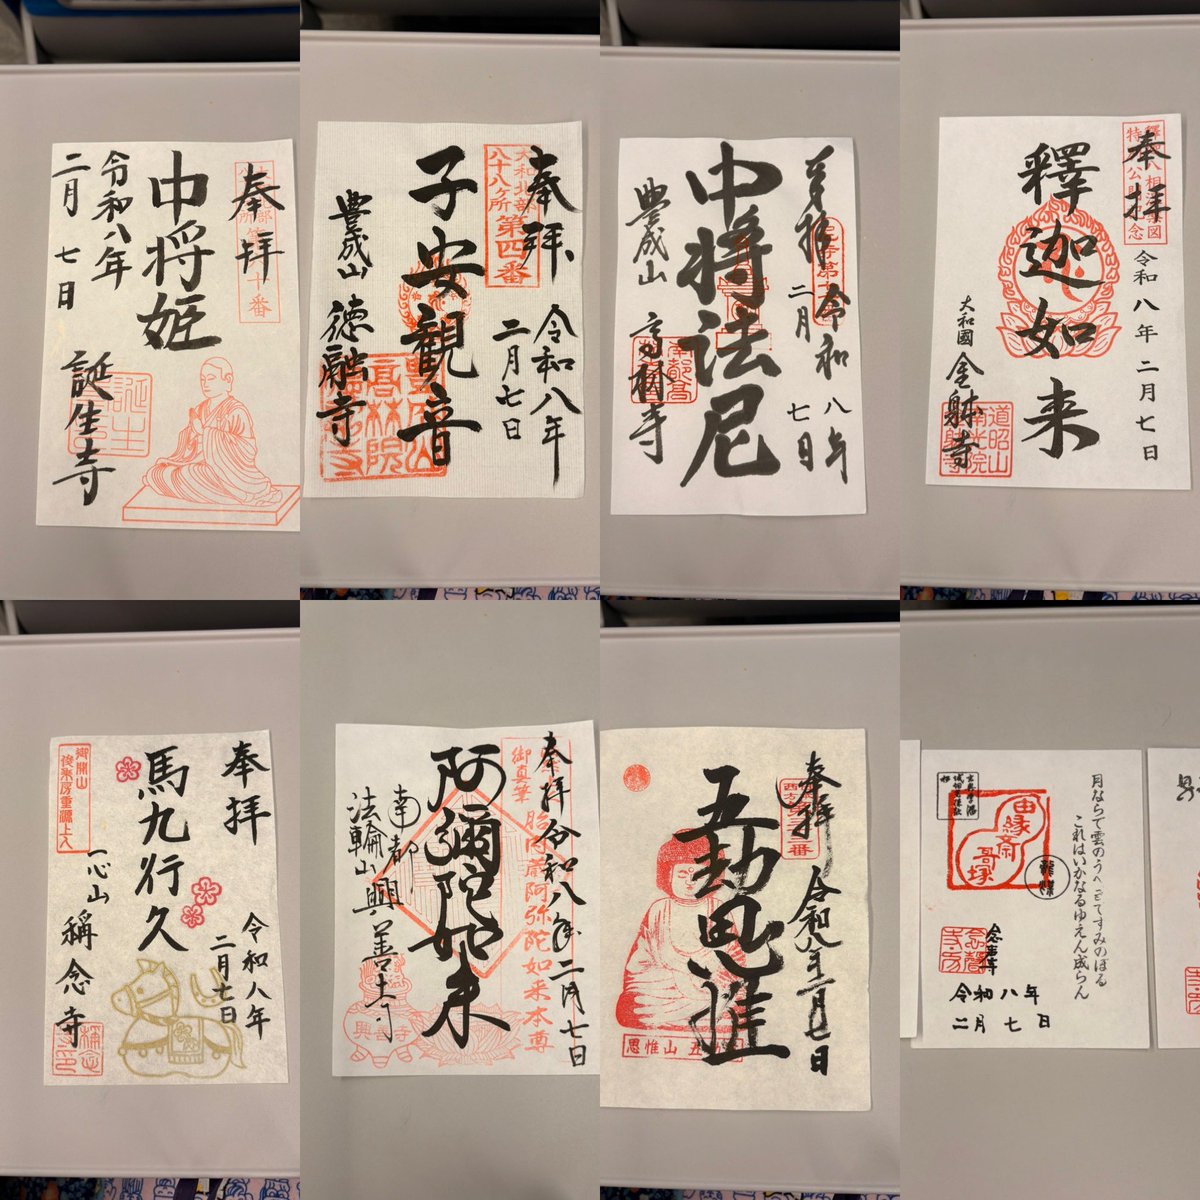 奉拝
中将姫
令和八年
二月 七日
誕生寺
奉拝
大和北部
八十八ヶ所 第四番
令和八年
二月七日
子安観音
豊成山 徳融寺
令和八年
二月 七日
中将法尼
豊成山 高林寺
奉拝
特別公開記念
令和八年二月七日
釋迦如来
大和國 金躰寺
道昭山
奉拝
令和八年
二月七日
馬九行久
一心山 稱念寺
御開山
俊乗房重源上人
奉拝 令和八年 二月七日
御真筆
胎内蔵阿弥陀如来本尊
阿彌陀如来
南都
法輪山 興善寺
興善寺
奉拝
令和八年二月七日
五劫思惟
思惟山
月ならて雲のうへまてすみのほる
これはいかなるゆえん成らん
由縁斎
哥塚
念声寺
令和八年
二月七日